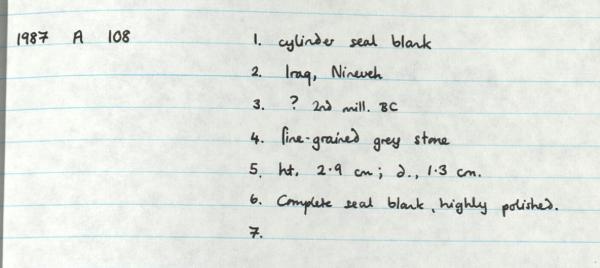 1987 A 108 1. cylinder seal blank
2. Iraq, Nineveh
3. ? 2nd mill. BC
4. fine-grained grey stone
5. ht, 2.9 cm; d., 1.3 cm.
6. Complete seal blank, highly polished.
7.